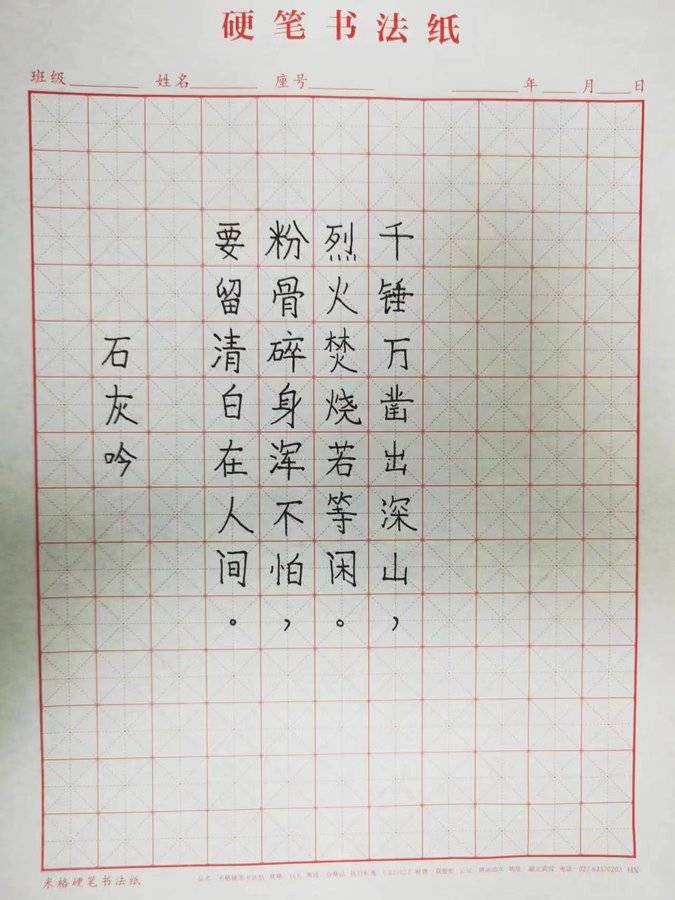 硬笔书法纸
班级 姓名 座号 年 月 日
千锤万凿出深山，
烈火焚烧若等闲。
粉骨碎身浑不怕，
要留清白在人间。
石灰吟
米格硬笔书法纸